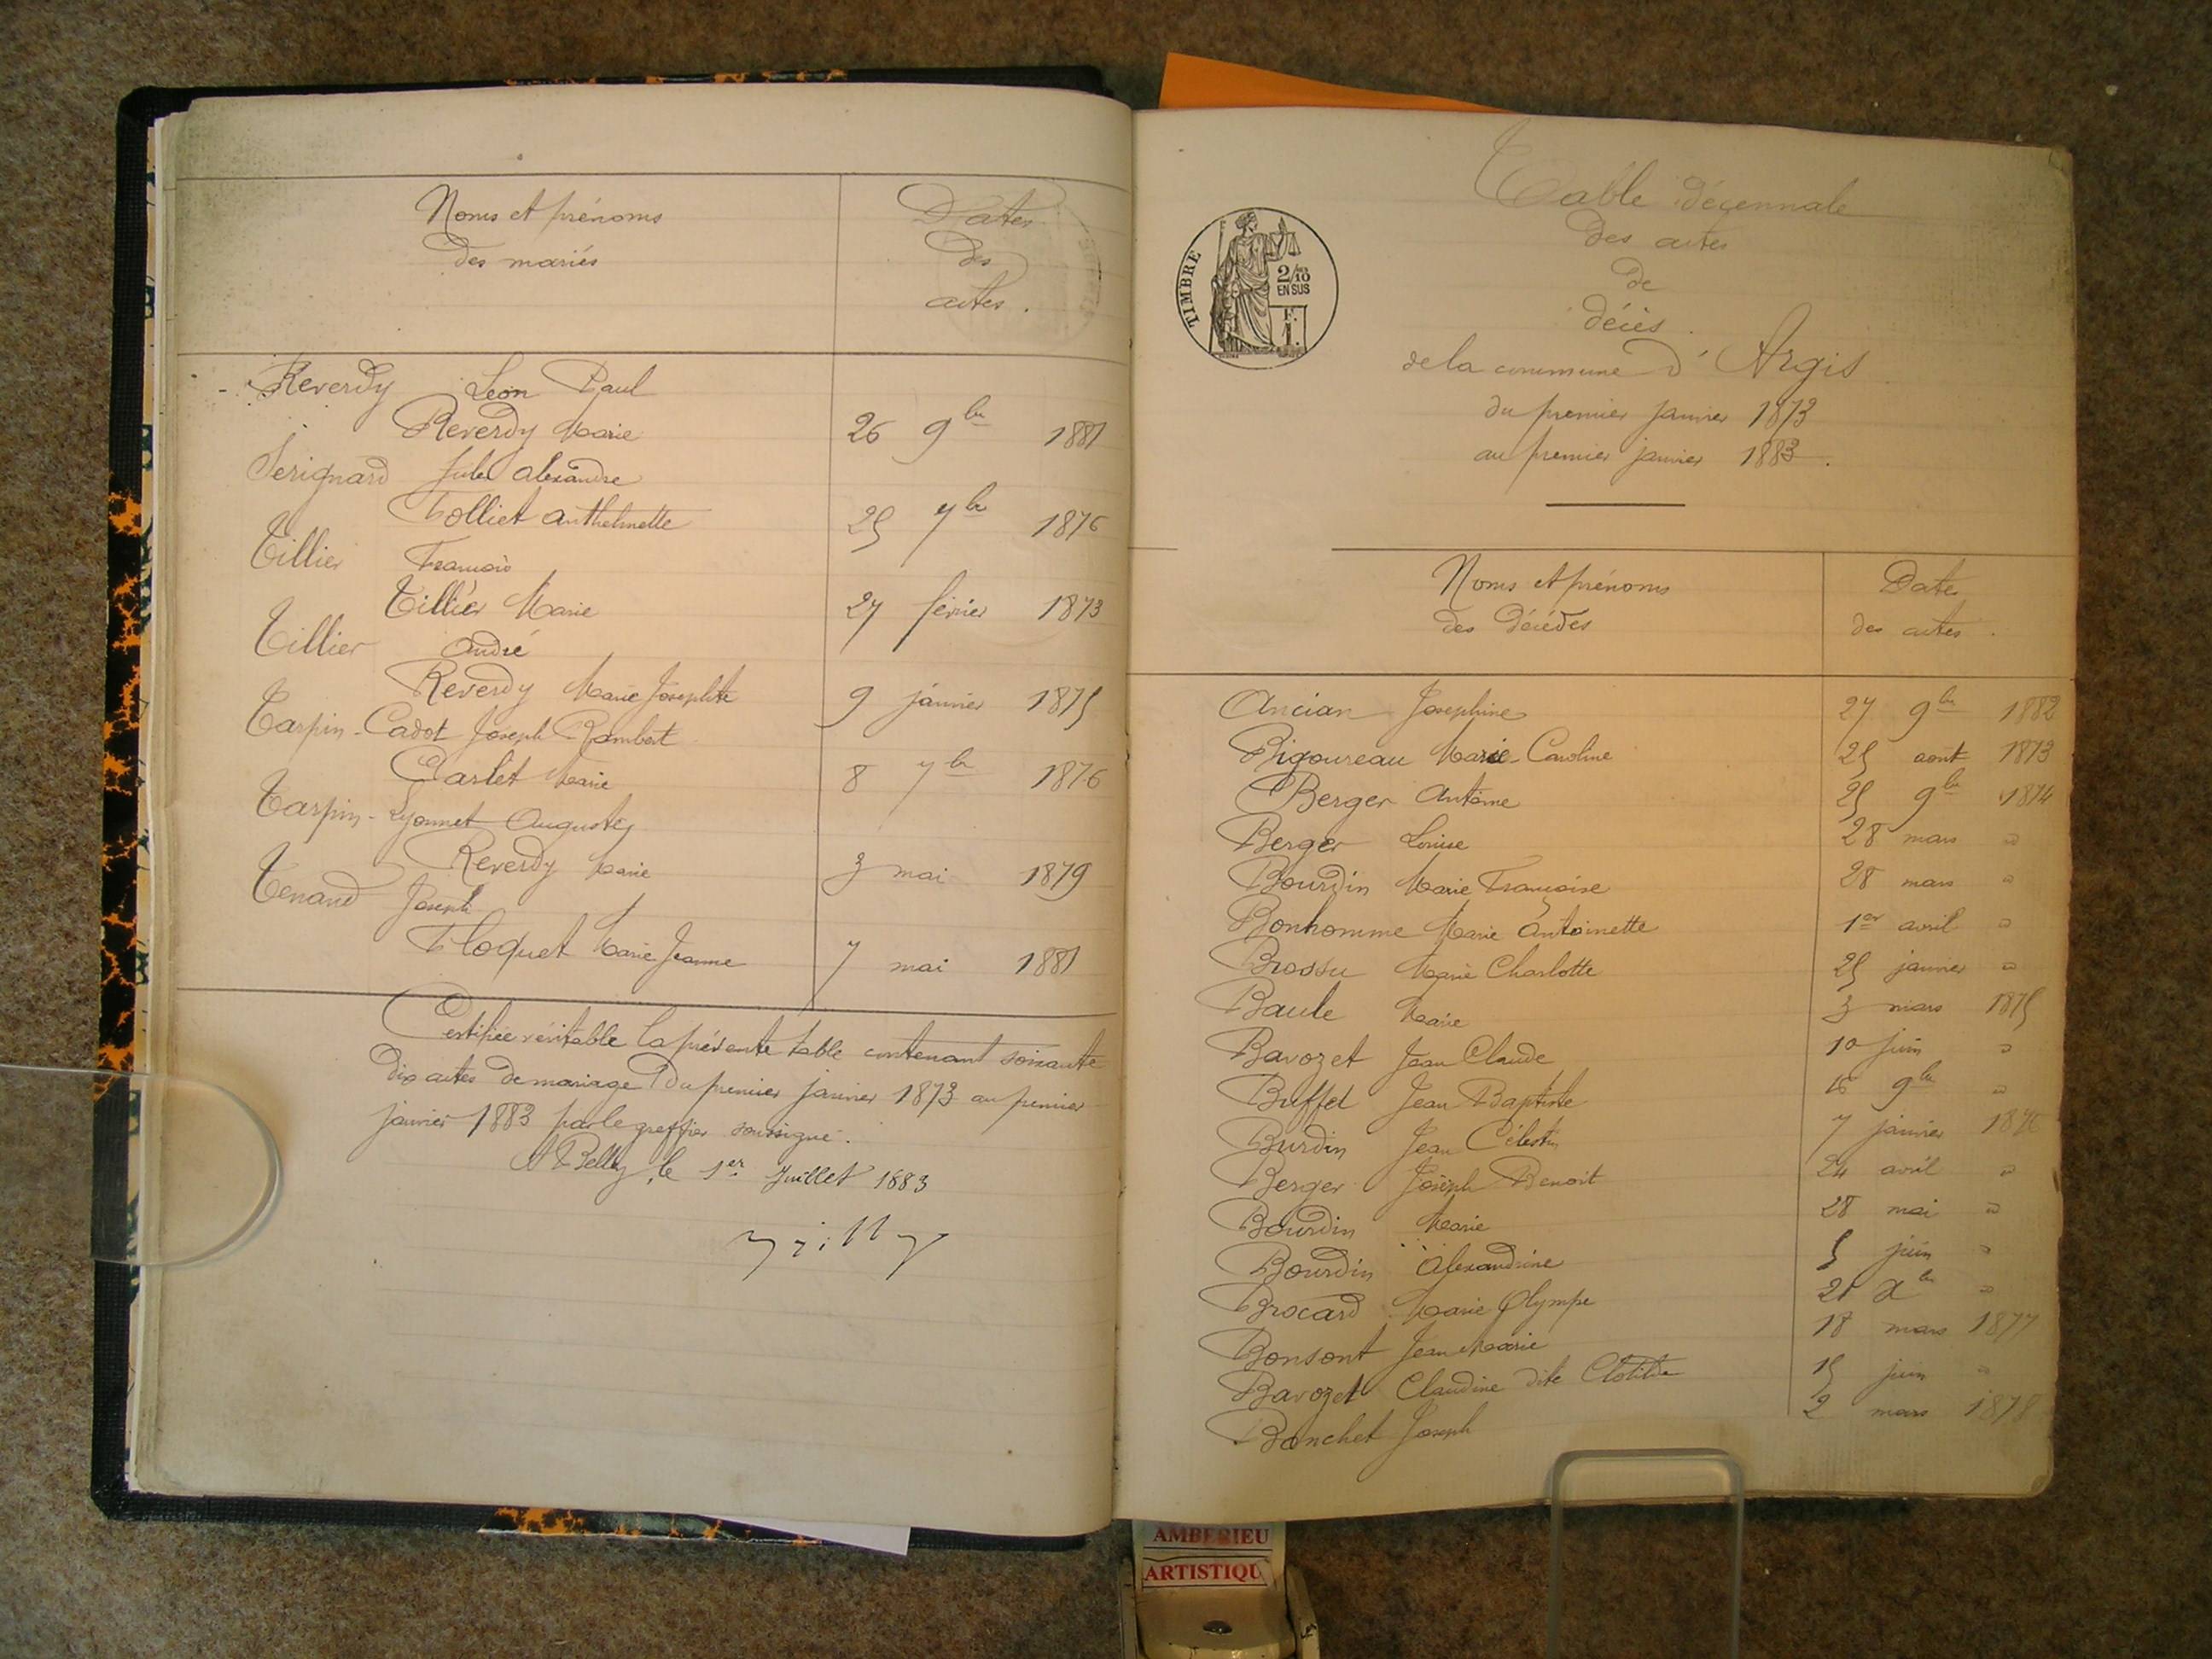 Noms et prénoms
des mariés
Dates
des
actes.
Reverdy Léon Paul
Reverdy Marie 26 9bre 1881
Serignard Jules Alexandre
Folliet Anthelmette 25 7bre 1876
Tillier François
Tillier Marie 27 février 1873
Tillier André
Reverdy Marie Josephte 9 janvier 1875
Tarpin-Cadot Joseph Rambert
Carlet Marie 8 7bre 1876
Tarpin-Lyonnet Auguste
Reverdy Marie 3 mai 1879
Tenand Joseph
Floquet Marie Jeanne 7 mai 1881
Certifiée véritable la présente table contenant soixante
dix actes de mariage du premier janvier 1873 au premier
janvier 1883 par le greffier soussigné.
A Belley, le 1er Juillet 1883
TIMBRE
2/10
EN SUS
F.
1.
Table décennale
des actes
de
décès.
de la commune d'Argis
du premier janvier 1873
au premier janvier 1883.
Noms et prénoms
des décédés
Dates
des actes.
Ancian Josephine 27 9bre 1882
Bigoureau Marie-Caroline 25 aout 1873
Berger Antoine 25 9bre 1874
Berger Louise 28 mars "
Bourdin Marie Françoise 28 mars "
Bonhomme Marie Antoinette 1er avril "
Brossu Marie Charlotte 25 janvier "
Baule Marie 3 mars 1875
Bavozet Jean Claude 10 juin "
Buffet Jean Baptiste 9bre "
Burdin Jean Célestin 7 janvier 1876
Berger Joseph Benoit 24 avril "
Bourdin Marie 28 mai "
Bourdin Alexandrine 5 juin "
Brocard Marie Olympe 21 Xbre "
Bonsont Jean Marie 18 mars 1877
Bavozet Claudine dite Clotilde 15 juin "
Bonchet Joseph 2 mars 1878
AMBERIEU
ARTISTIQU